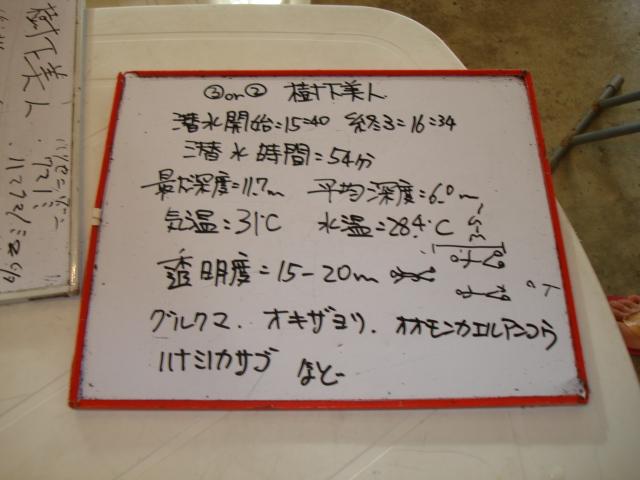 ③or② 樹下美人
潜水開始=15=40 終了=16=34
潜水時間=54分
最大深度=11.7m 平均深度=6.0m
気温=31℃ 水温=28.4℃
透明度=15-20m
グルクマ、オキザヨリ、オオモンカエルアンコウ
ハナミカサゴ など
樹下美人